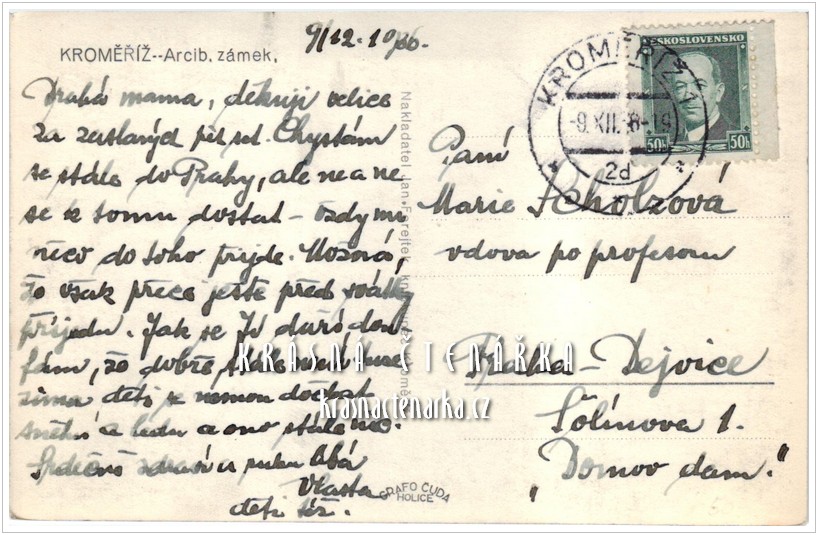 9/12.1936.
KROMĚŘÍŽ--Arcib. zámek.
Drahá mama, děkuji velice
za zaslaných pět set. Chystám
se stále do Prahy, ale ne a ne
se k tomu dostat - vždy mi
něco do toho přijde. Možná,
že však přece ještě před svátky
přijedu. Jak se Ti daří? dou-
fám, že dobře.
zima děti se nemohou dočkat
sněhu a ledu a ono stále nic.
Srdečně zdraví a ruku líbá
Vlasta
děti též.
Nakladatel Jan Forejtek
GRAFO ČUDA
HOLICE
KROMĚŘÍŽ 1
-9.XII.36-19
2d
ČESKOSLOVENSKO
50h 50h
Paní
Marie Scholzová
vdova po profesoru
Praha-Dejvice
Šolínova 1.
„Domov dam."
KRÁSNÁ ČTENÁŘKA
krasnactenarka.cz